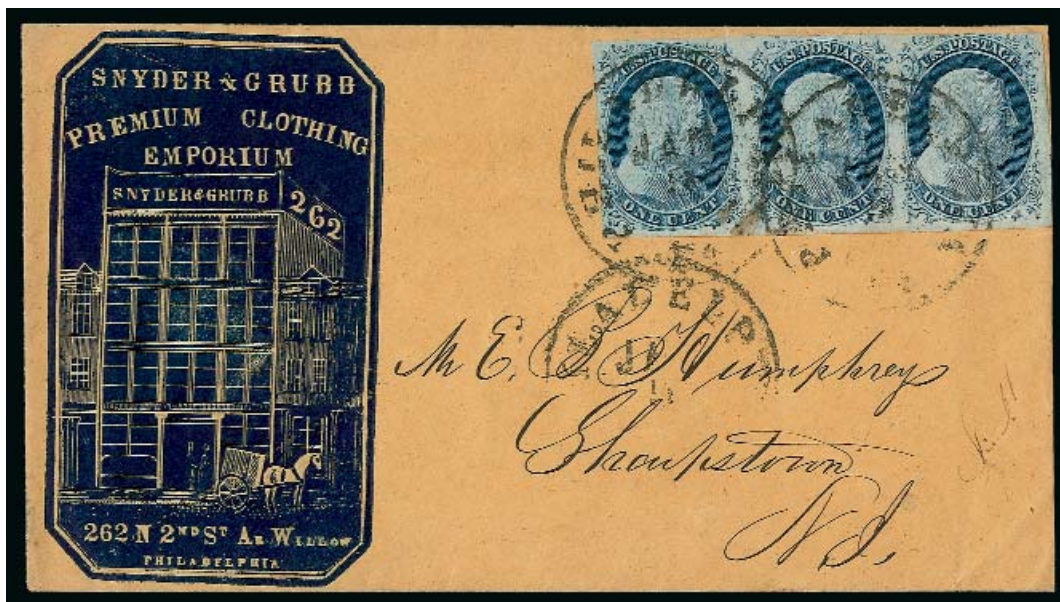 SNYDER & GRUBB
PREMIUM CLOTHING
EMPORIUM
SNYDER & GRUBB
262
262 N 2ND ST AB WILLOW
PHILADELPHIA
U.S. POSTAGE
ONE CENT
U.S. POSTAGE
ONE CENT
U.S. POSTAGE
ONE CENT
JAN
Mr E. S. Humphreys
Sharpstown
N.J.